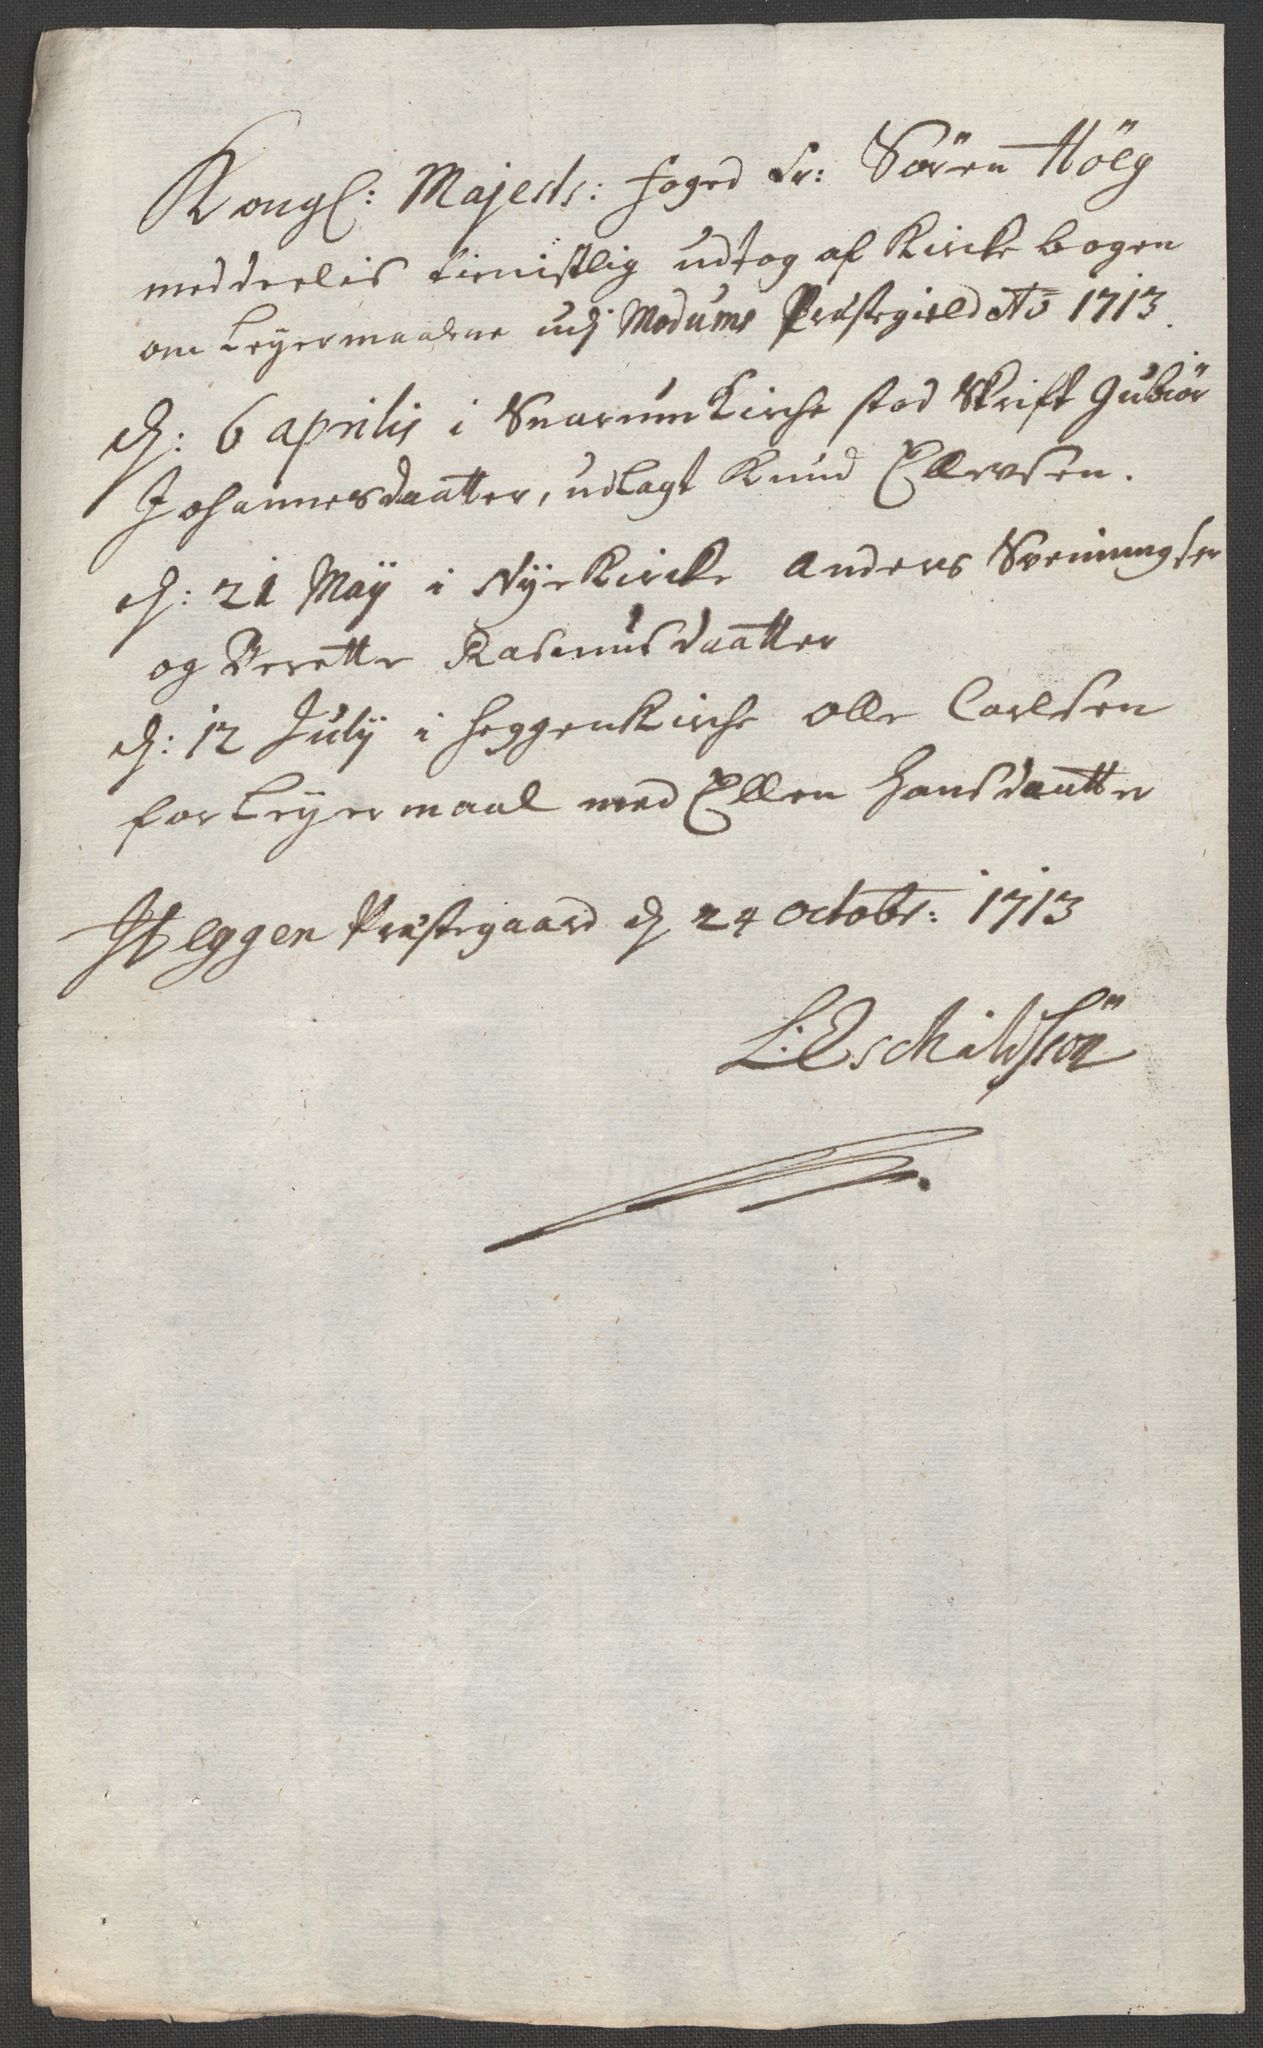 Kongl: Majests: foged Sr: Sören Höeg
meddeelis tienistlig udtog af Kircke bogen
om Leyermaalene udj Modums Præstegield Ao 1713.
d: 6 aprilis i Snarum Kirche stod Skrift Gubiör
Johannesdaatter, udlagt Knud Ellevsen.
d: 21 Maÿ i Nÿe Kircke Anders Svenningsen
og Berette Rasmusdaatter
d: 12 Julÿ i HeggenKirche Olle Carlsen
for Leyermaal med Ellen Hansdaatter
Heggen Præstegaard d 24 octobr: 1713
L: Eschildsson